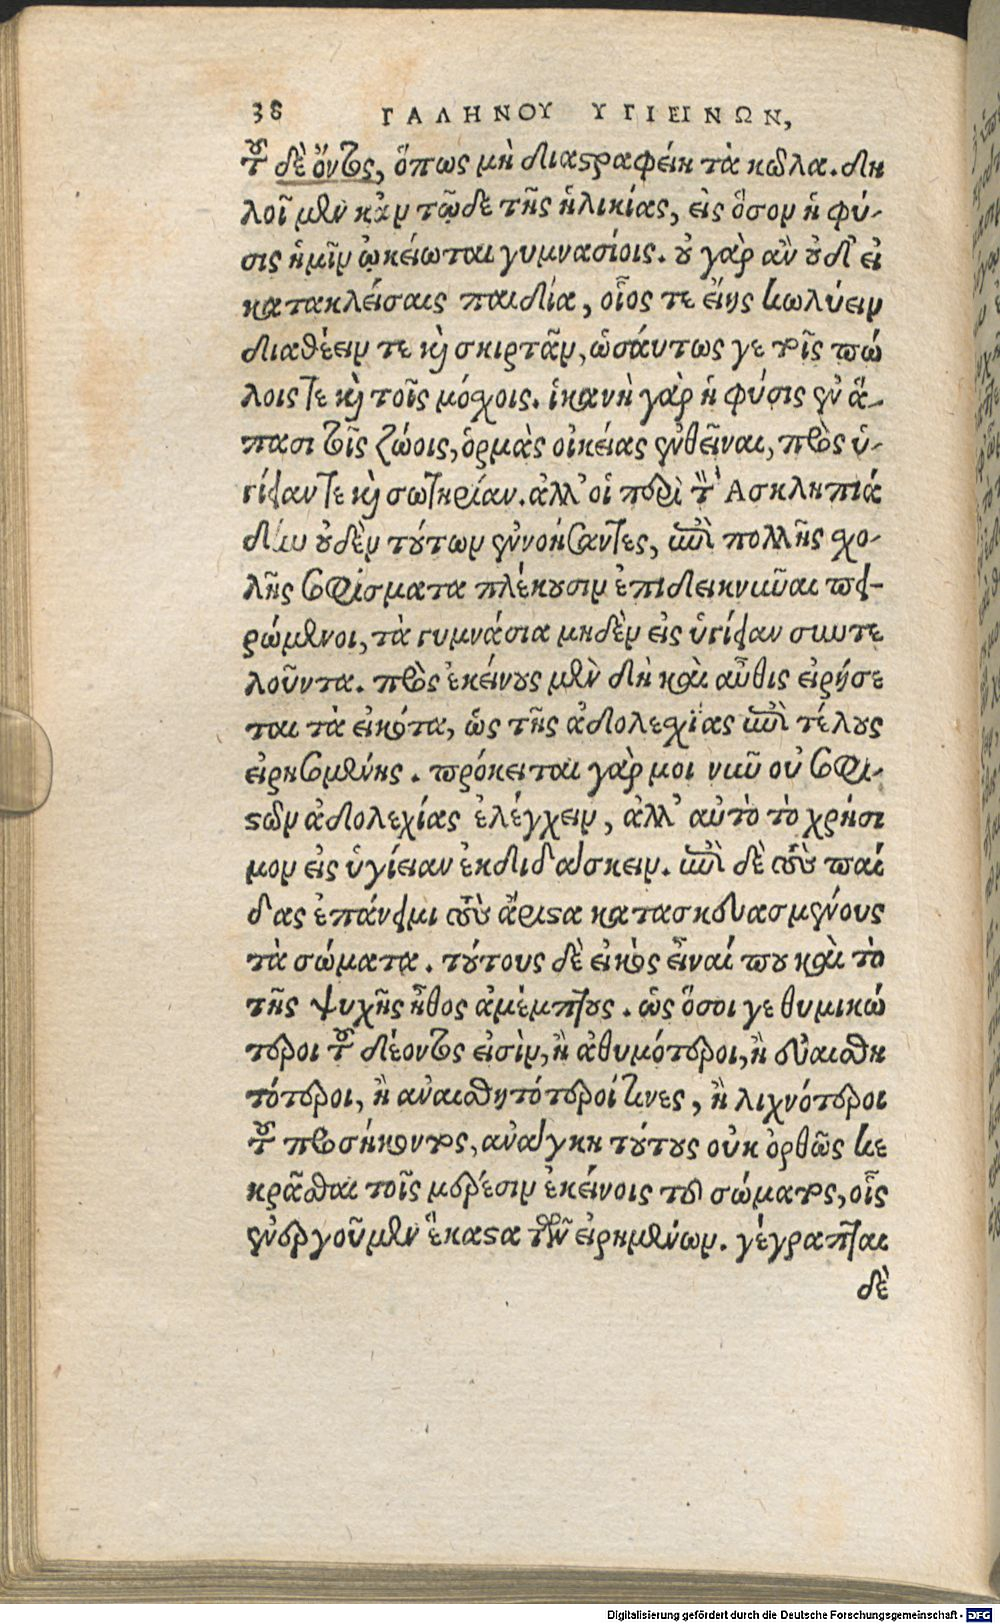 38 ΓΑΛΗΝΟΥ ΥΓΙΕΙΝΩΝ,
τοῦ δέοντος, ὅπως μὴ διαστραφείη τὰ κῶλα. δη
λοῖ μὲν κἀν τῷδε τῆς ἡλικίας, εἰς ὅσον ἡ φύ-
σις ἡμῖν ᾠκείωται γυμνασίοις. οὐ γὰρ ἂν οὐδ' εἰ
κατακλείσαις παιδία, οἷός τε εἴης κωλύειν
διαθέειν τε καὶ σκιρτᾶν, ὡσαύτως γε τοῖς πώ
λοις τε καὶ τοῖς μόσχοις. ἱκανὴ γὰρ ἡ φύσις ἐν ἅ-
πασι τοῖς ζώοις, ὁρμὰς οἰκείας ἐνθεῖναι, πρὸς ὑ-
γίειαν τε καὶ σωτηρίαν. ἀλλ' οἱ περὶ τὸν Ἀσκληπιά
δην οὐδὲν τούτων ἐννοήσαντες, ἐπὶ πολλῆς σχο-
λῆς σοφίσματα πλέκουσιν ἐπιδεικνῦναι πει-
ρώμενοι, τὰ γυμνάσια μηδὲν εἰς ὑγίειαν συντε
λοῦντα. πρὸς ἐκείνους μὲν δὴ καὶ αὖθις εἰρήσε
ται τὰ εἰκότα, ὡς τῆς ἀδολεσχίας ἐπὶ τέλους
εἰρησομένης. πρόκειται γὰρ μοι νῦν οὐ σοφι-
στῶν ἀδολεχίας ἐλέγχειν, ἀλλ' αὐτὸ τὸ χρήσι
μον εἰς ὑγίειαν ἐκδιδάσκειν. ἐπὶ δὲ τοὺς παῖ
δας ἐπάνειμι τοὺς ἄριστα κατασκευασμένους
τὰ σώματα. τούτους δὲ εἰκὸς εἶναί που καὶ τὸ
τῆς ψυχῆς ἦθος ἀμέμπτους. ὡς ὅσοι γε θυμικώ
τεροι τοῦ δέοντος εἰσὶν, ἢ ἀθυμότεροι, ἢ εὐαισθη
τότεροι, ἢ ἀναισθητότεροί τινες, ἢ λιχνότεροι
τοῦ προσήκοντος, ἀνάγκη τούτους οὐκ ὀρθῶς κε
κρᾶσθαι τοῖς μέρεσιν ἐκείνοις τοῦ σώματος, οἷς
ἐνεργοῦμεν ἕκαστα τῶν εἰρημένων. γέγραπται
δὲ
Digitalisierung gefördert durch die Deutsche Forschungsgemeinschaft - DFG